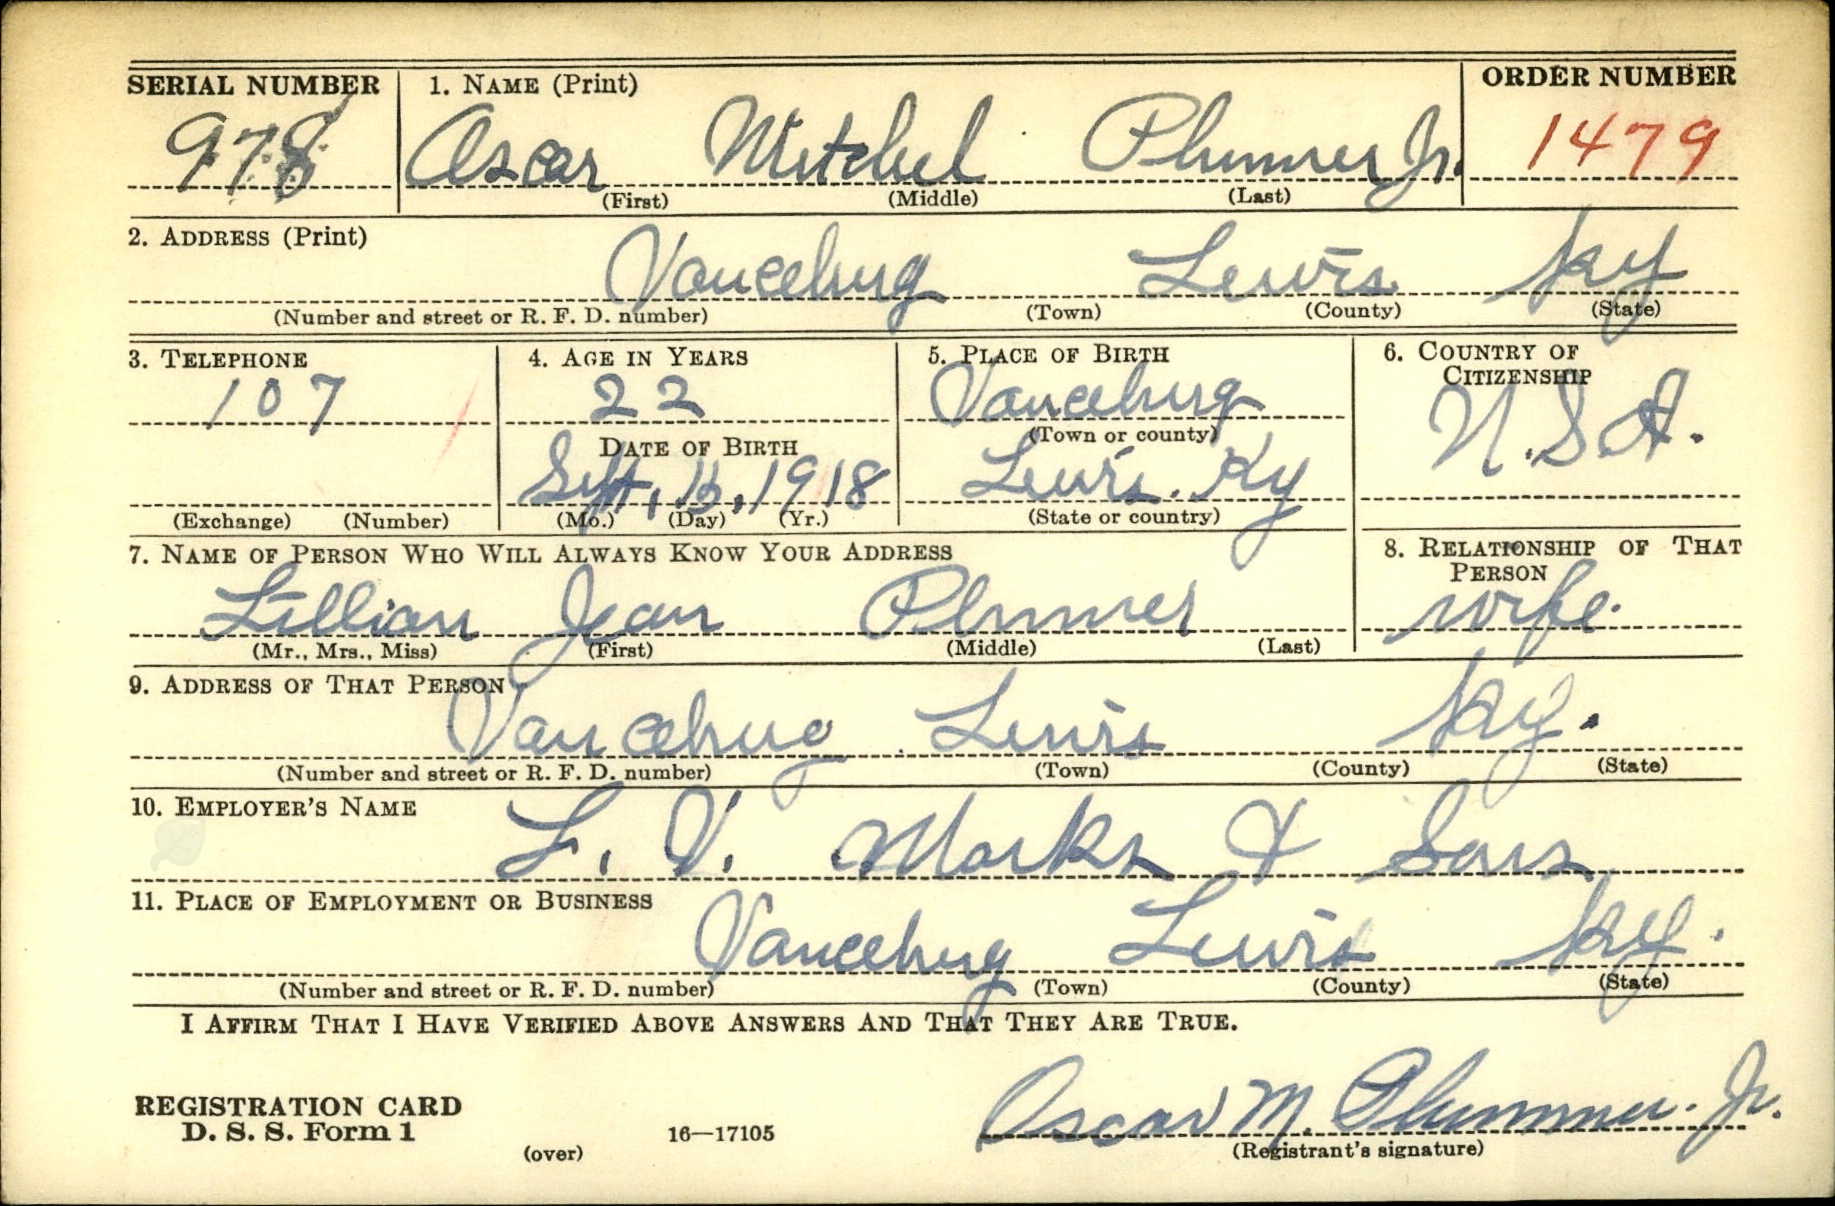 SERIAL NUMBER 1. NAME (Print) ORDER NUMBER
978 Oscar Mitchel Plummer Jr. 1479
(First) (Middle) (Last)
2. ADDRESS (Print)
Vanceburg Lewis Ky
(Number and street or R. F. D. number) (Town) (County) (State)
3. TELEPHONE 4. AGE IN YEARS 5. PLACE OF BIRTH 6. COUNTRY OF CITIZENSHIP
107 22 Vanceburg U.S.A.
(Town or county)
DATE OF BIRTH
Sept. , 1918 Lewis. Ky
(Exchange) (Number) (Mo.) (Day) (Yr.) (State or country)
7. NAME OF PERSON WHO WILL ALWAYS KNOW YOUR ADDRESS 8. RELATIONSHIP OF THAT PERSON
Lillian Jean Plummer wife.
(Mr., Mrs., Miss) (First) (Middle) (Last)
9. ADDRESS OF THAT PERSON
Vanceburg Lewis Ky.
(Number and street or R. F. D. number) (Town) (County) (State)
10. EMPLOYER'S NAME
L. V. Marks & Sons
11. PLACE OF EMPLOYMENT OR BUSINESS
Vanceburg Lewis Ky.
(Number and street or R. F. D. number) (Town) (County) (State)
I AFFIRM THAT I HAVE VERIFIED ABOVE ANSWERS AND THAT THEY ARE TRUE.
REGISTRATION CARD
D. S. S. Form 1
(over) 16—17105
Oscar M. Plummer. Jr.
(Registrant's signature)